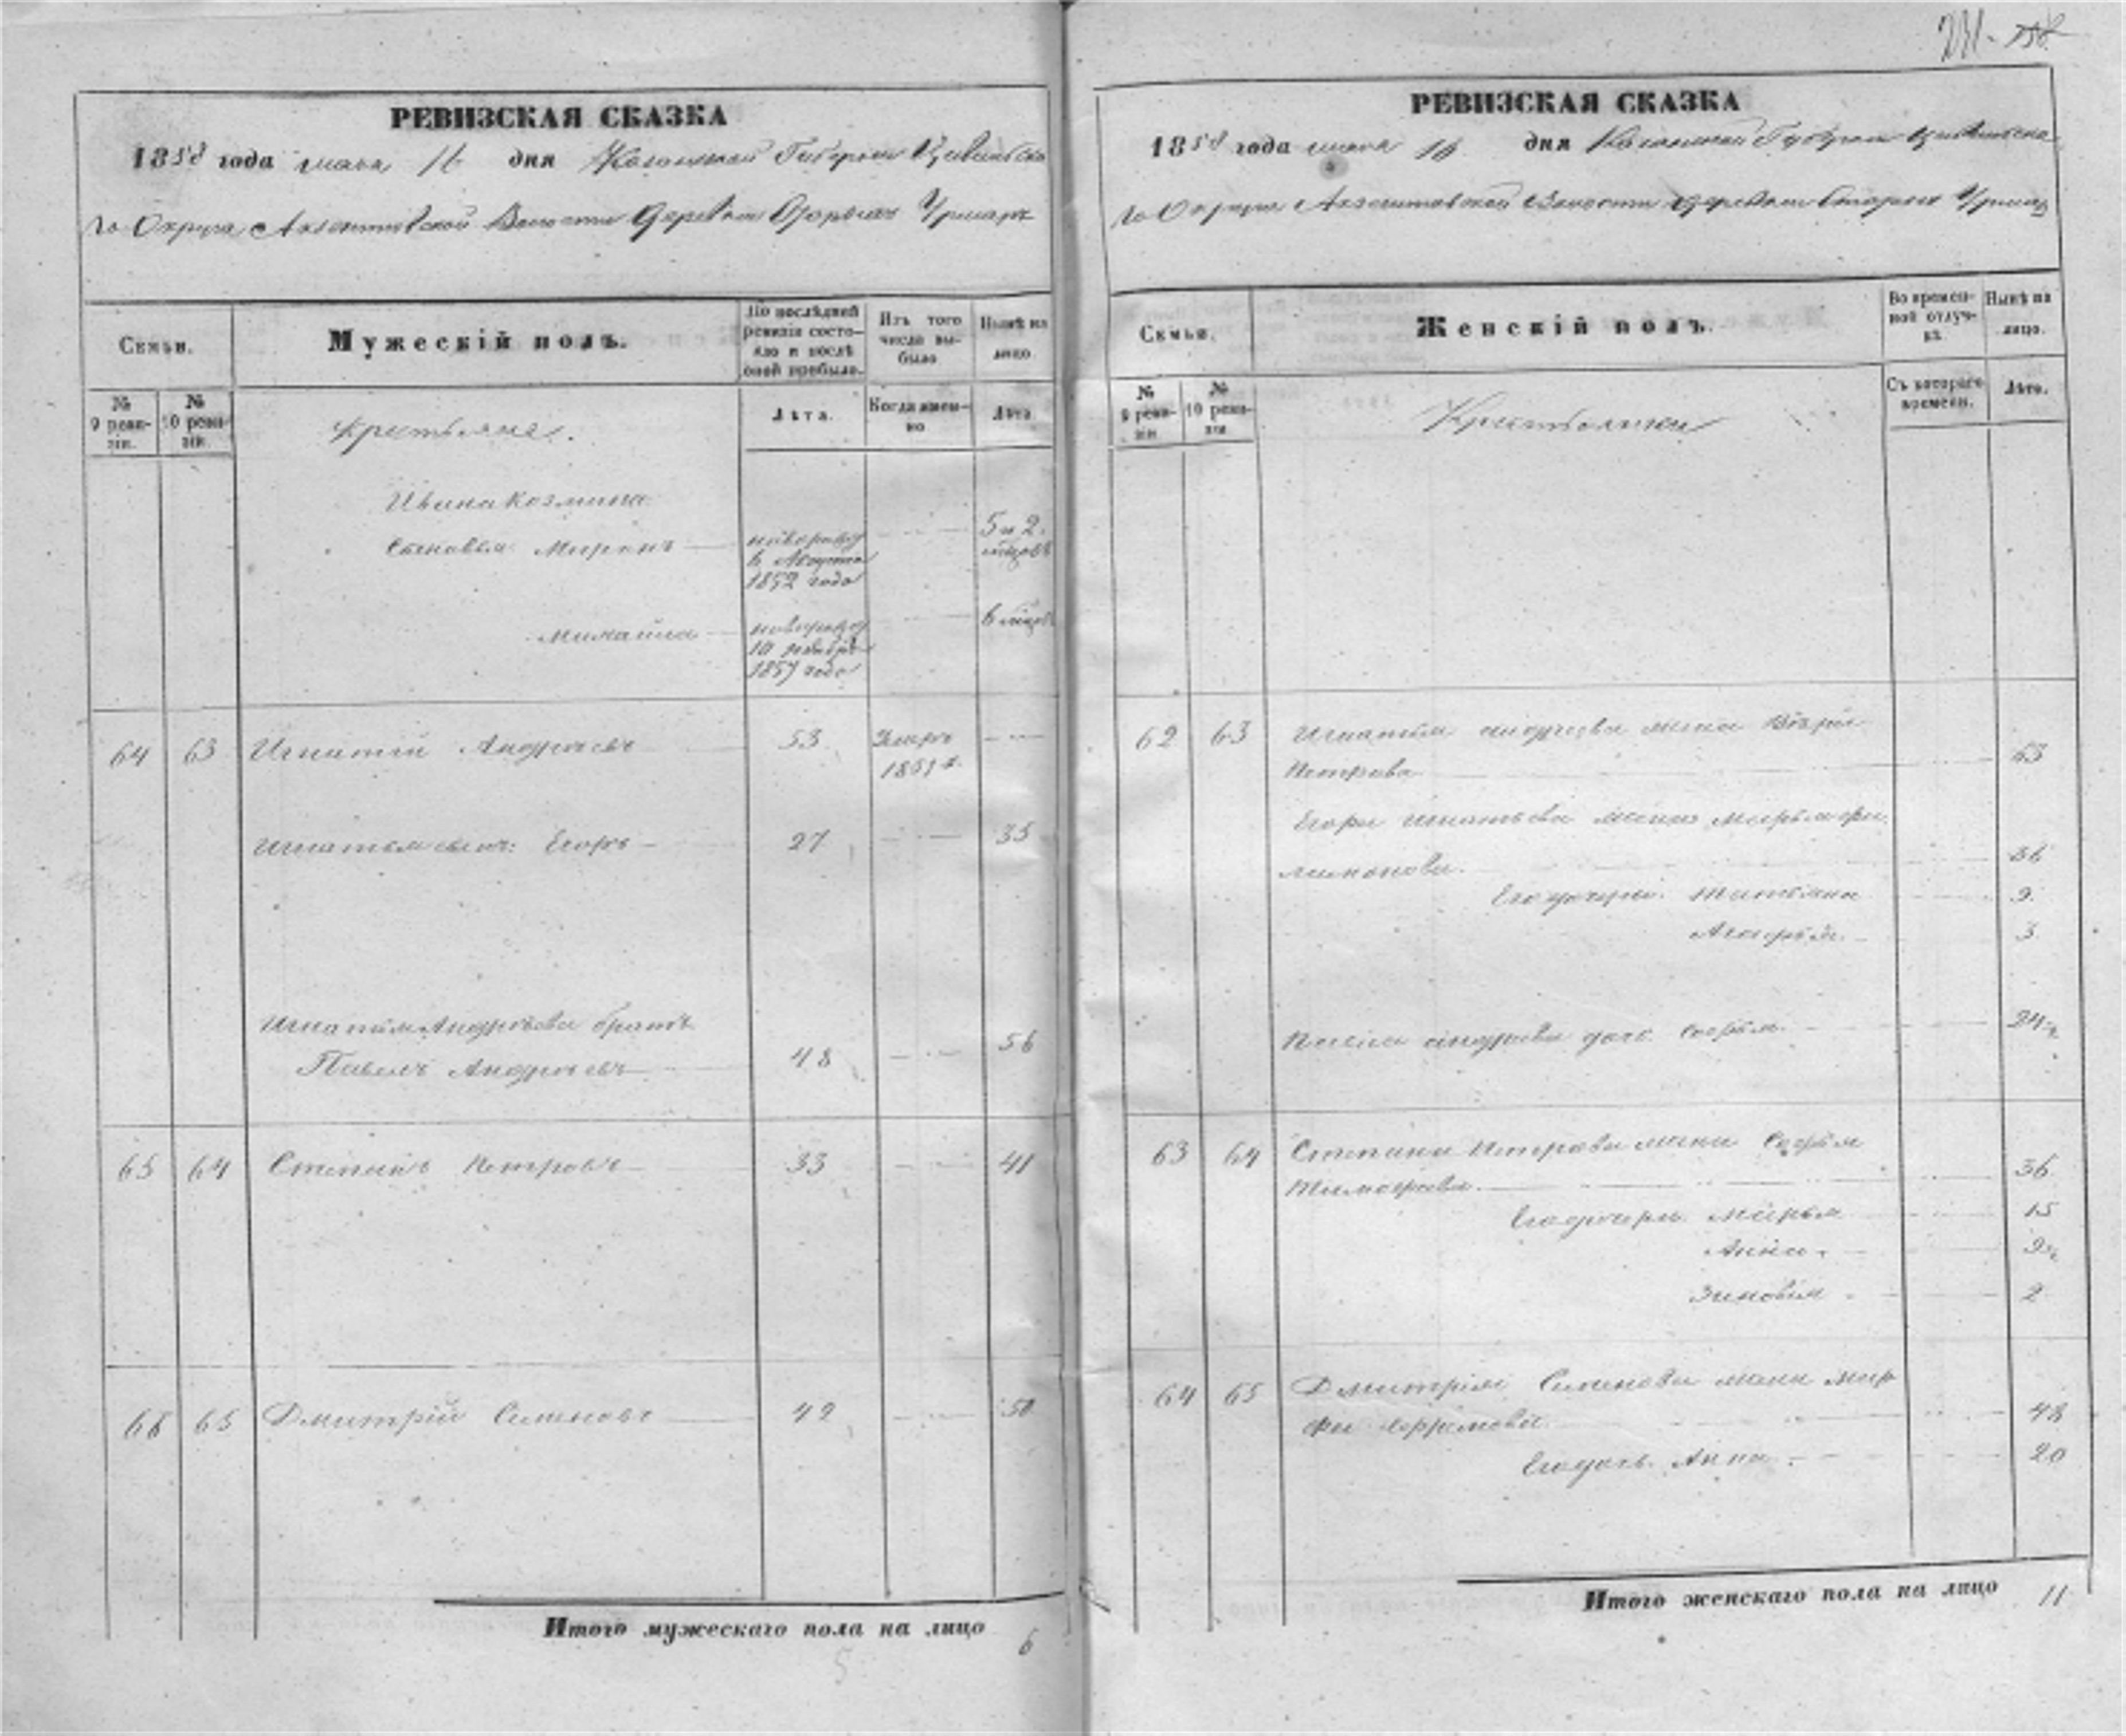 231. 158
РЕВИЗСКАЯ СКАЗКА
1858 года мая 16 дня Казанской Губернии Цивильска
го Округа Акзегитовской Волости Деревни Старыхъ Урмаръ
Семьи.
Мужескій полъ.
По послѣдней ревизіи состояло и послѣ оной прибыло.
Изъ того числа выбыло
Нынѣ на лицо
№ 9 ревизіи.
№ 10 ревизіи.
Крестьяне.
Лѣта.
Когда именно
Лѣта
Ивана Козмина
Сыновья Миронъ
новорожд
1852 года
5 и 2.
Михайла
новорожд
10 ноября
1857 года
6
64 63 Игнатій Андреевъ 53 Умеръ
1851 г.
Игнатья сынъ: Егоръ 27 35
Игнатья Андреева братъ
Павелъ Андреевъ 48 56
65 64 Степанъ Петровъ 33 41
66 65 Дмитрій Семеновъ 42 50
Итого мужескаго пола на лицо 6
5
РЕВИЗСКАЯ СКАЗКА
1858 года мая 16 дня Казанской Губерніи Цивильска
го Округа Акзегитовской Волости Деревни Старыхъ Урмаръ
Семьи.
Женскій полъ.
Во временной отлучкѣ.
Нынѣ на лицо.
№ 9 ревизіи
№ 10 ревизіи
Крестьянки
Съ котораго времени.
Лѣта.
62 63 Игнатья Андреева жена
Петрова 63
Егора Игнатьева жена Марья Фи
лимонова. 36
Его дочери: Татьяна 9
3
Павла Андреева дочь Софья 24½
63 64 Степана Петрова жена Софья
Тимофеева. 36
Его дочери Марья 15
Анна 9½
Зиновія 2
64 65 Дмитрія Семенова жена Мар
фа Ефремова 48
Его дочь Анна 20
Итого женскаго пола на лицо 11